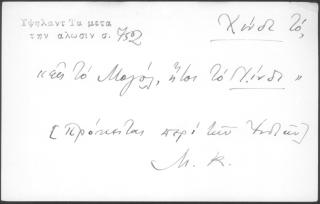 Υψηλαντ Τα μετα
την αλωσιν σ. 752
Χίντι τό,
«εἰς τό Μογόλ, ἤτοι τό Χίντι»
[Πρόκειται περί τῶν Ἰνδιῶν]
Μ. Κ.